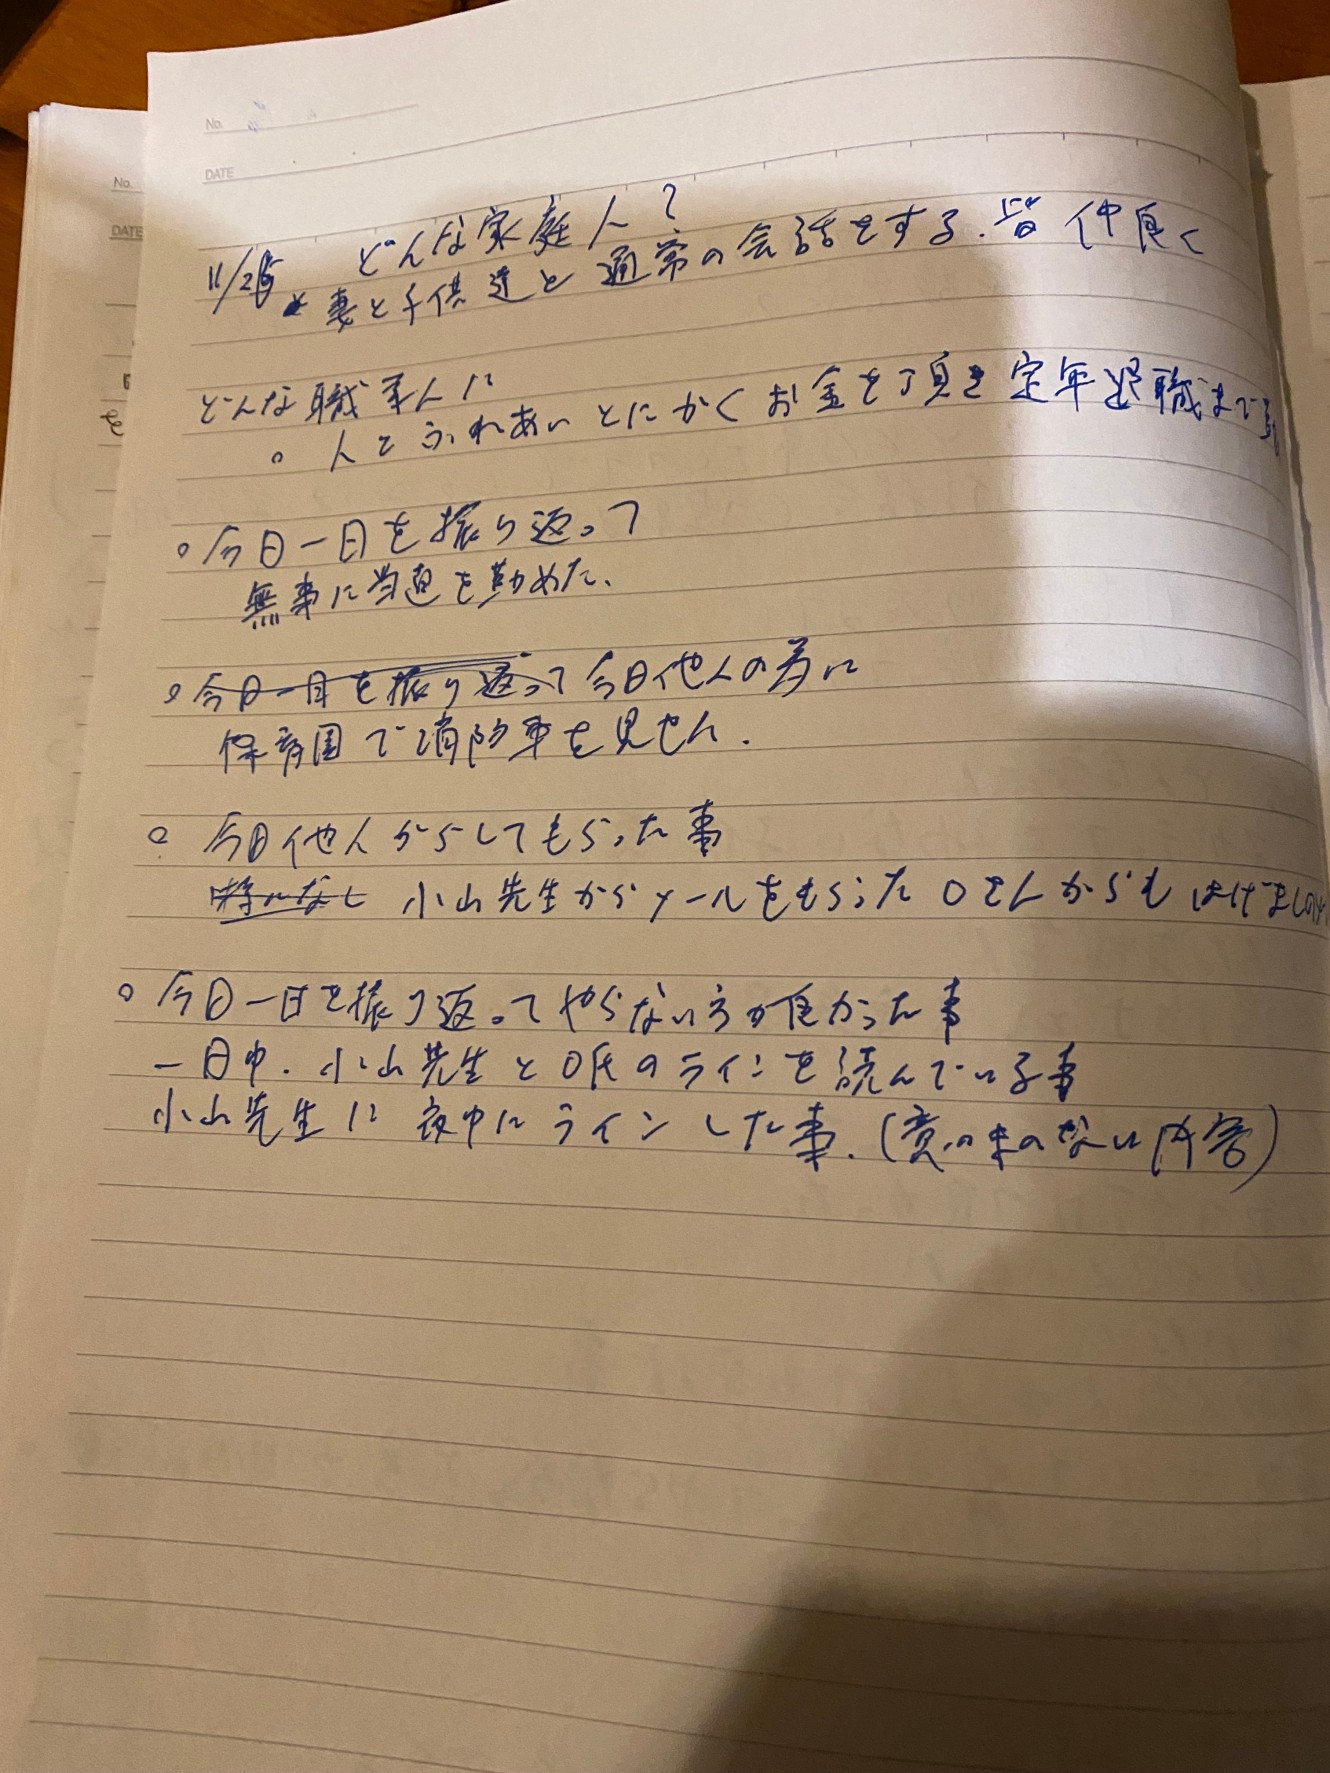 No.
DATE
No.
DATE
11/25 どんな家庭人?
妻と子供達と通常の会話をする. 皆 仲良く
どんな職業人に
○ 人とふれあい とにかくお金を頂き 定年退職まで
○今日一日を振り返って
無事に当直を勤めた、
○今日一日を振り返って 今日他人の為に
保育園で消防車を見せた.
○ 今日他人からしてもらった事
特になし 小山先生からメールをもらった Oさんからも はげましの
○ 今日一日を振り返ってやらない方が良かった事
一日中. 小山先生とO氏のラインを読んでいる事
小山先生に 夜中にラインした事. (意味のない内容)